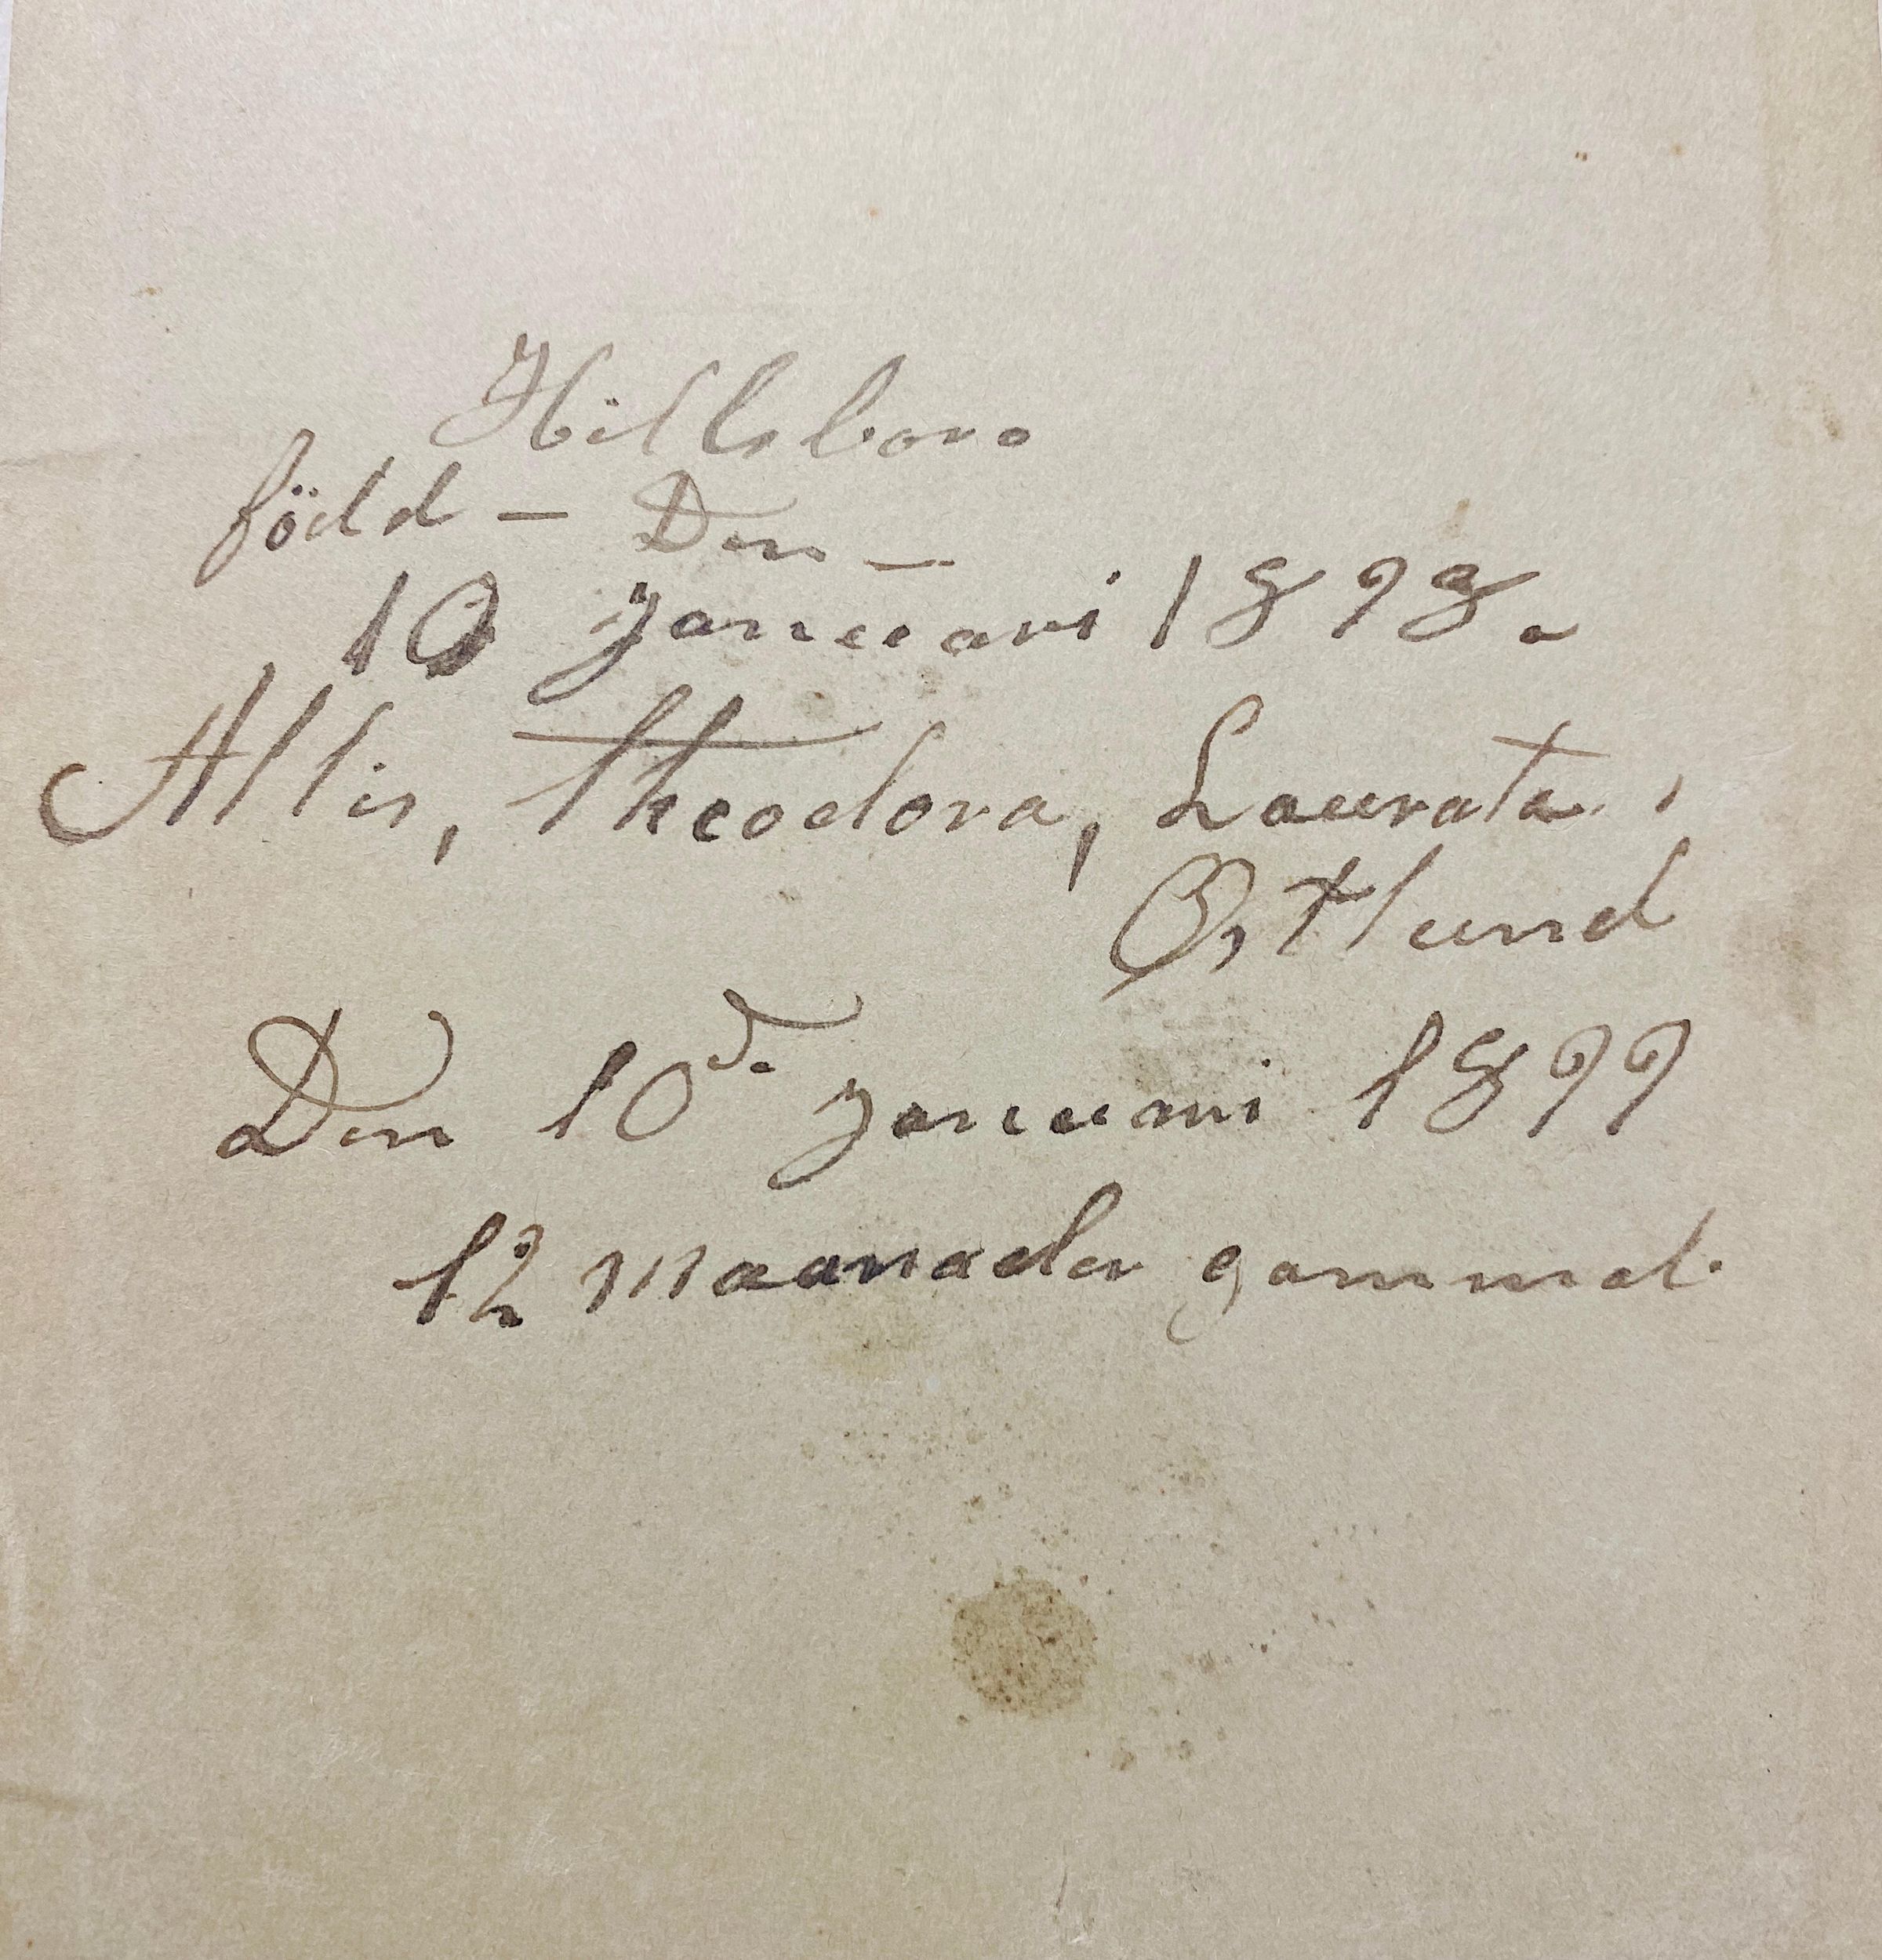 Hillsboro
född – Den –
10 Januari 1898.
Allis, Theodora, Laurata,
Østlund
Den 10de Januari 1899
12 maanader gammal.